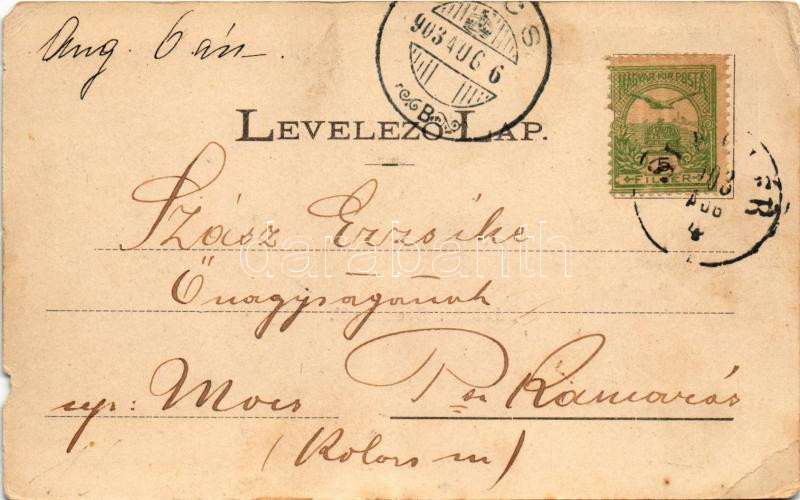 Aug. 6 án
CS
903 AUG 6
B
MAGYAR KIR. POSTA
5
FILLÉR
903
AUG
4
LEVELEZŐ LAP.
Szász Erzsike
Őnagyságának
up: Mocs P sn Kamarás
(Kolozs m)
darabanth